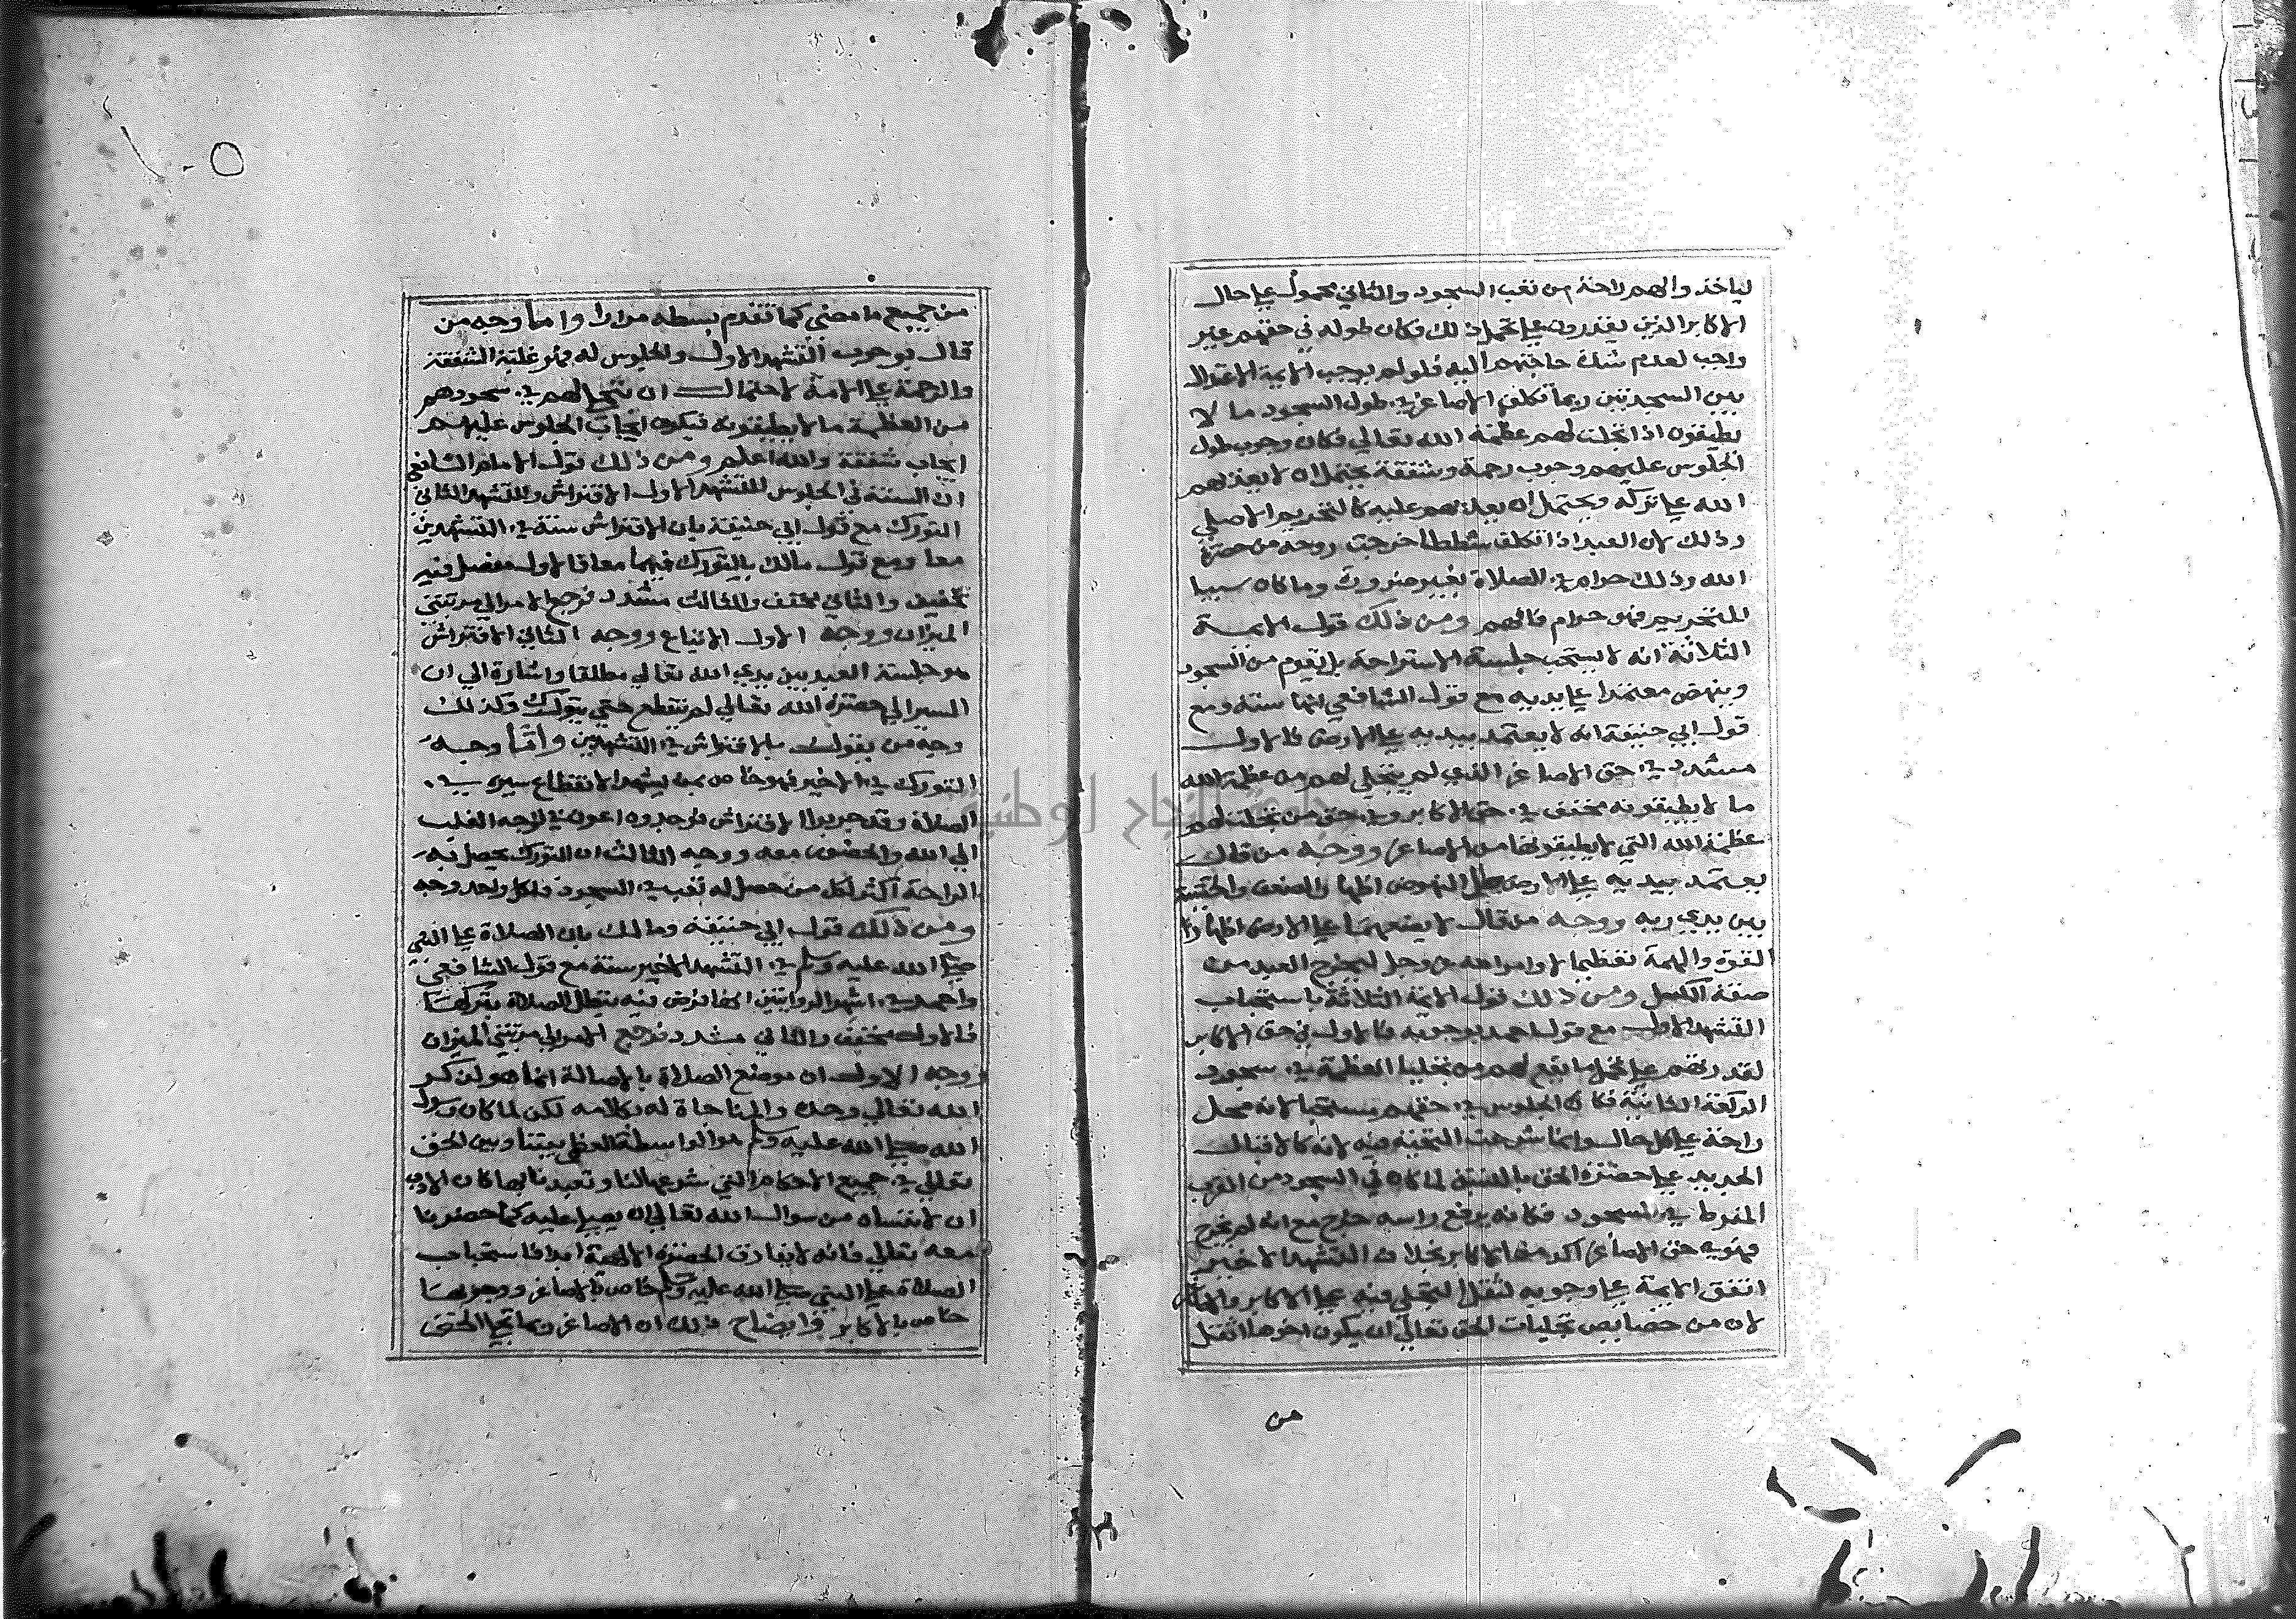 لياخذوا لهم راحة من تعب السجود والثاني محمول علي حال
الاكابر الذين يقدرون علي تحمل ذلك فكان طوله في حقهم غير
واجب لعدم شدة حاجتهم اليه فلو لم يوجب الايمة الاعتدال
بين السجدتين ربما تكلف الاصاغر في طول السجود ما لا
يطيقون اذا تجلت لهم عظمة الله تعالي فكان وجوب طول
الجلوس عليهم وجوب رحمة وشفقة يحتمل ان لا يعذبهم
الله علي تركه ويحتمل ان يعذبهم عليه كالتحريم الاصلي
وذلك لان العبد اذا تكلف شططا خرجت روحه من حضرة
الله وذلك حرام في الصلاة بغير ضرورة وما كان سببا
للتحريم فهو حرام فافهم ومن ذلك قول الايمة
الثلاثة انه لا يستحب جلسة الاستراحة بل يقوم من السجود
وينهض معتمدا علي يديه مع قول الشافعي انها سنة ومع
قول ابي حنيفة انه لا يعتمد بيديه علي الارض فالاول
مشدد في حق الاصاغر الذي لم يتجلي لهم من عظمة الله
ما لا يطيقونه مخفف في حق الاكابر وفي حق من تجلت لهم
عظمة الله التي لا يطيقونها من الاصاغر ووجه من قال
يعتمد بيديه علي الارض حال النهوض اظهار الضعف
بين يدي ربه ووجه من قال لا يضعهما علي الارض اظهار
القوة والهمة تعظيما لاوامر الله عز وجل ليخرج العبد من
صفة الكسل ومن ذلك قول الايمة الثلاثة باستحباب
التشهد الاول مع قول احمد بوجوبه فالاول في حق الاكابر
لقدرتهم علي تحمل ما يقع لهم من تجليا العظمة في سجود
الركعة الثانية فكان الجلوس في حقهم مستحبا لانه محل
راحة علي كل حال وانما شرعت التحية فيه لانه كالاقبال
الجديد علي حضرة الحق بالنسبة لما كان في السجود من القرب
المفرط في السجود فكانه برفع راسه خرج مع انه لم يخرج
فهو في حق الاصاغر اكد منه الاكابر بخلاف التشهد الاخير
اتفق الايمة علي وجوبه لثقل التجلي فيه علي الاكابر
لان من خصايص تجليات الحق تعالي ان يكون اخرها اثقل
من
من جميع ما مضي كما تقدم بسطه مرارا واما وجه من
قال بوجوب التشهد الاول والجلوس له فهو غلبة الشفقة
والرحمة علي الامة لاحتمال ان يتجلي لهم في سجودهم
من العظمة ما لا يطيقونه فيكون ايجاب الجلوس عليهم
ايجاب شفقة والله اعلم ومن ذلك قول الامام الشافعي
ان السنة في الجلوس للتشهد الاول الافتراش وللتشهد الثاني
التورك مع قول ابي حنيفة بان الافتراش سنة في التشهدين
معا ومع قول مالك بالتورك فيهما معا فالاول مفصل فيه
تخفيف والثاني مخفف والثالث مشدد فرجع الامر الي مرتبتي
الميزان ووجه الاول الاتباع ووجه الثاني الافتراش
هو جلسة العبد بين يدي الله تعالي مطلقا واشارة الي ان
السير الي حضرة الله تعالي لم ينقطع حتي يتورك وكذلك
وجه من يقول بالافتراش في التشهدين وأمّا وجه
التورك في الاخير فهو خاص بمن يشهد الانقطاع سيره في
الصلاة وقد جربوا الافتراش فوجدوه اعون في توجه القلب
الي الله والحضور معه ووجه الثالث ان التورك يحصل به
الراحة اكثر لكل من حصل له تعب في السجود فلكل واحد وجه
ومن ذلك قول ابي حنيفة ومالك بان الصلاة علي النبي
صلي الله عليه وسلم في التشهد الاخير سنة مع قول الشافعي
واحمد في اشهر الروايتين انها فرض فيه تبطل الصلاة بتركها
فالاول مخفف والثاني مشدد فرجع الامر الي مرتبتي الميزان
ووجه الاول ان موضع الصلاة بالاصالة انما هو لذكر
الله تعالي وحده والمناجاة له بكلامه لكن لما كان رسول
الله صلي الله عليه وسلم هو الواسطة العظمي بيننا وبين الحق
تعالي في جميع الاحكام التي شرعها لنا وتعبدنا بها كان الادب
ان لا ننساه من سوال الله تعالي ان يصلي عليه كلما حضرنا
معه تعالي فانه لا يفارق الحضرة الالهية ابدا فاستحباب
الصلاة علي النبي صلي الله عليه وسلم خاص بالاصاغر ووجوبها
خاص بالاكابر وايضاح ذلك ان الاصاغر ربما تجلي الحق
جامعة النجاح الوطنية